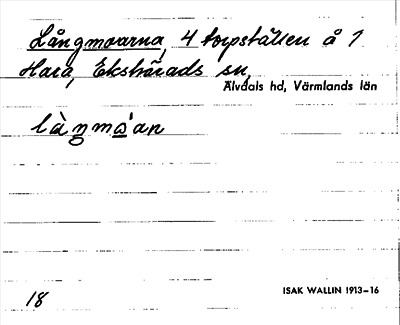 Långmoarna, 4 torpställen å 1
Hara, Ekshärads sn,
Älvdals hd, Värmlands län
là̀ŋmo̠'an
18
ISAK WALLIN 1913–16